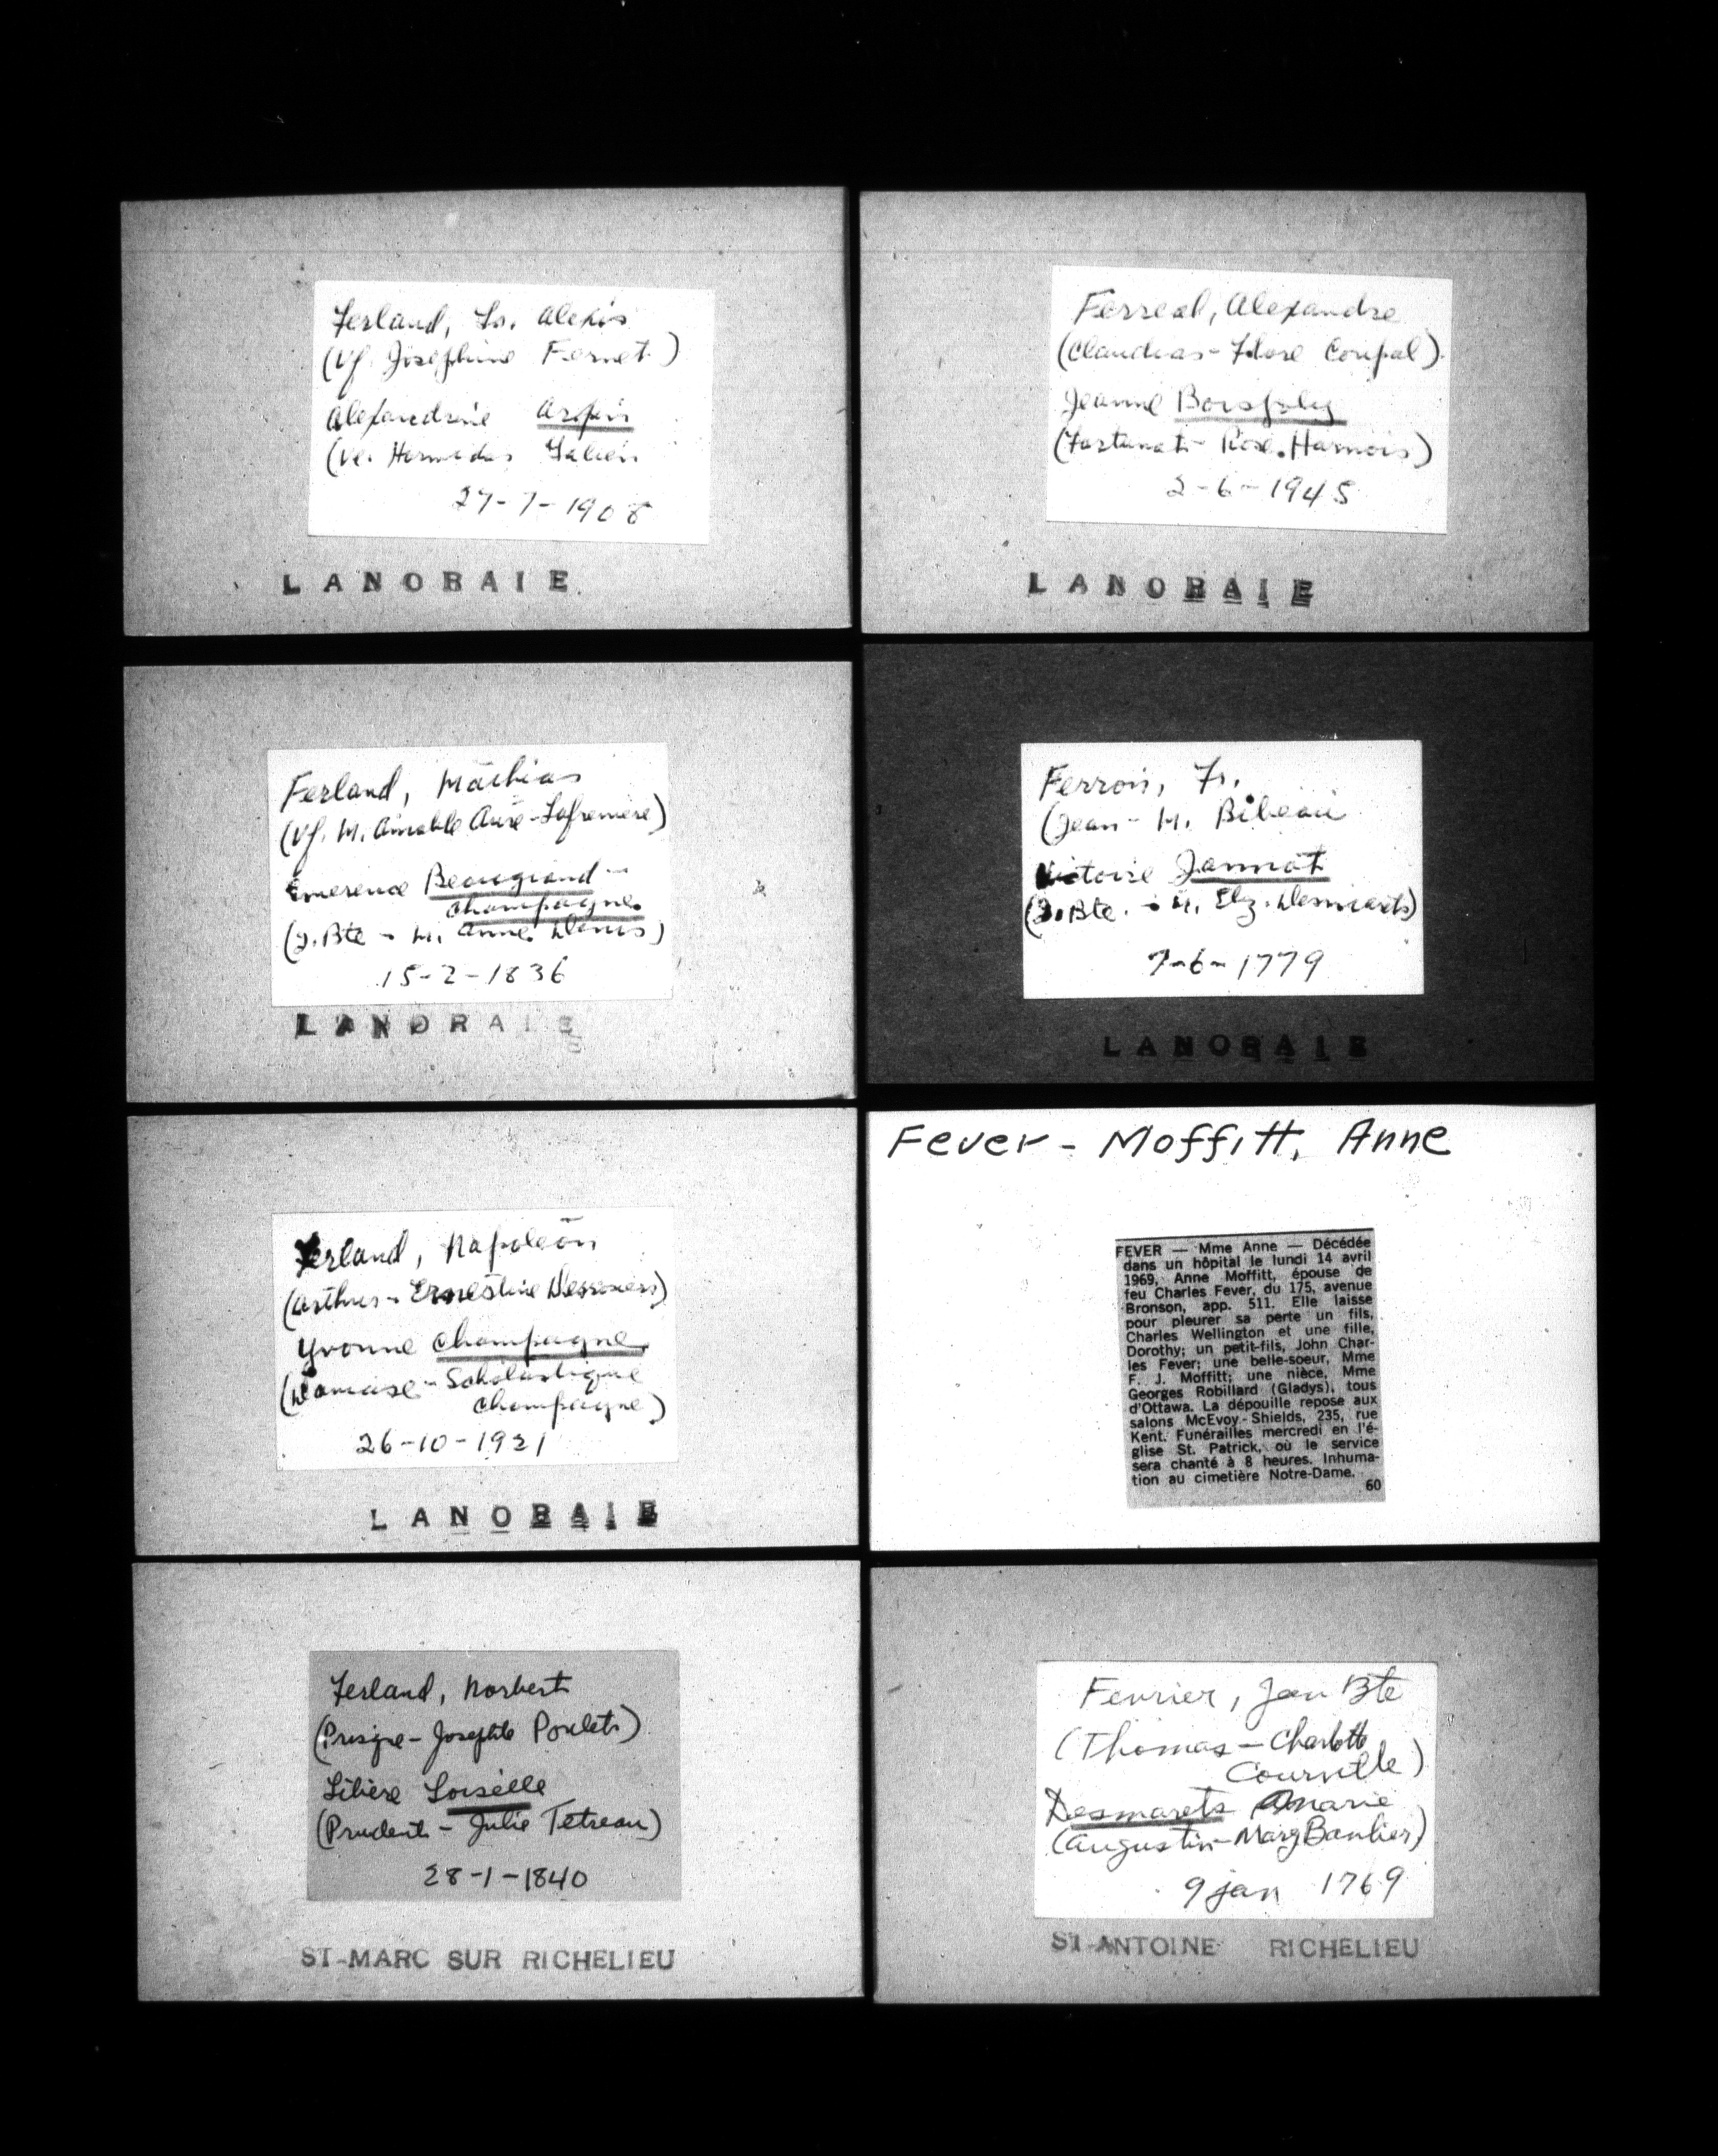 Ferland, Frs. Alexis
(Vf. Josephine Fernet.)
Alexandrine Arpin
(Ve. Hermidas Valein
27-7-1908
LANORAIE
Ferland, Mathias
(Vf. M. Aimable Auré-Lafrenière)
Emerence Beaugrand-
Champagne
(J. Bte - M. Anne Denis)
15-2-1836
LANORAIE
Ferland, Napoléon
(Arthur - Ernestine Desrosiers)
Yvonne Champagne
(Damase - Scholastique
Champagne)
26-10-1921
LANORAIE
Ferland, Norbert
(Prisque - Josephte Poulets)
Libière Loiselle
(Prudent - Julie Tetreau)
28-1-1840
ST-MARC SUR RICHELIEU
Ferreal, Alexandre
(Claudias - Flore Coupal)
Jeanne Boisjoly
(Fortunat - Rose. Harnois)
2-6-1945
LANORAIE
Ferron, Fr.
(Jean - M. Bibeau
Victoire Jannot
(J. Bte. - M. Elz. Desmarets)
7-6-1779
LANORAIE
Fever - Moffitt, Anne
FEVER — Mme Anne — Décédée
dans un hôpital le lundi 14 avril
1969, Anne Moffitt, épouse de
feu Charles Fever, du 175, avenue
Bronson, app. 511. Elle laisse
pour pleurer sa perte un fils,
Charles Wellington et une fille,
Dorothy; un petit-fils, John Char-
les Fever; une belle-soeur, Mme
F. J. Moffitt; une nièce, Mme
Georges Robillard (Gladys), tous
d'Ottawa. La dépouille repose aux
salons McEvoy-Shields, 235, rue
Kent. Funérailles mercredi en l'é-
glise St. Patrick, où le service
sera chanté à 8 heures. Inhuma-
tion au cimetière Notre-Dame.
60
Fevrier, Jean Bte
(Thomas - Charlotte
Courville)
Desmarets Marie
(Augustin - Marg Banlier)
9 jan 1769
ST-ANTOINE RICHELIEU